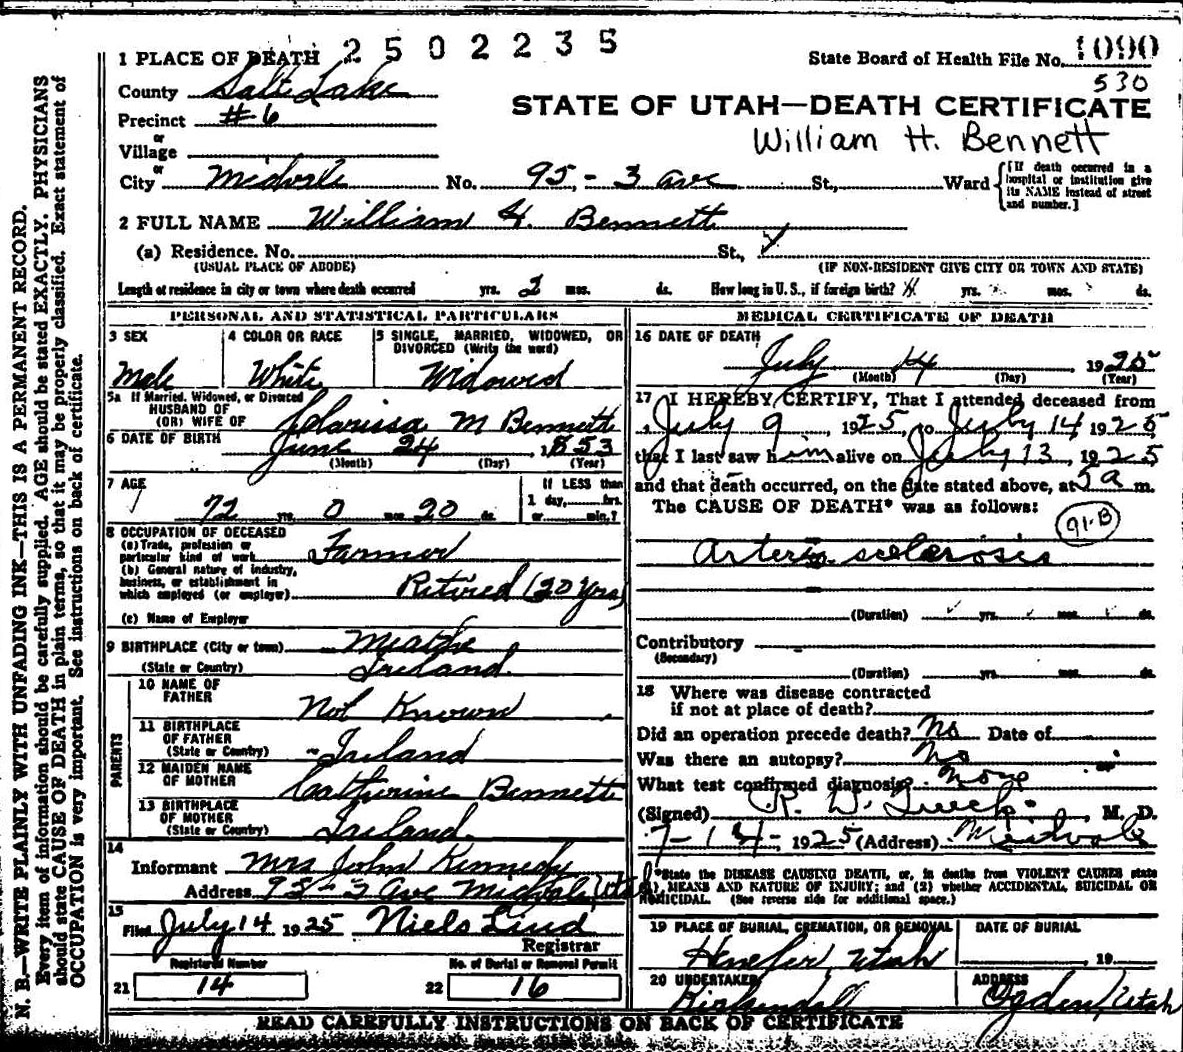 1 PLACE OF DEATH 2502235 State Board of Health File No. 1090
County Salt Lake 530
Precinct #6 STATE OF UTAH—DEATH CERTIFICATE
or William H. Bennett
Village
or
City Midvale No. 95 - 3 ave St., Ward [If death occurred in a hospital or institution give its NAME instead of street and number.]
2 FULL NAME William H. Bennett
(a) Residence. No. St.,
(USUAL PLACE OF ABODE) (IF NON-RESIDENT GIVE CITY OR TOWN AND STATE)
Length of residence in city or town where death occurred yrs. 2 mos. ds. How long in U.S., if foreign birth? yrs. mos. ds.
PERSONAL AND STATISTICAL PARTICULARS
3 SEX
Male
4 COLOR OR RACE
White
5 SINGLE, MARRIED, WIDOWED, OR
DIVORCED (Write the word)
Widowed
5a If Married, Widowed, or Divorced
HUSBAND OF
(OR) WIFE OF Clarissa M Bennett
6 DATE OF BIRTH June 24, 1853
(Month) (Day) (Year)
7 AGE
72 yrs. 0 mos. 20 ds.
If LESS than
1 day, hrs.
or min.?
8 OCCUPATION OF DECEASED
(a) Trade, profession or
particular kind of work Farmer
(b) General nature of industry,
business, or establishment in
which employed (or employer) Retired (20 yrs)
(c) Name of Employer
9 BIRTHPLACE (City or town) Meathe
(State or Country) Ireland
PARENTS
10 NAME OF
FATHER Not Known
11 BIRTHPLACE
OF FATHER
(State or Country) Ireland
12 MAIDEN NAME
OF MOTHER Catherine Bennett
13 BIRTHPLACE
OF MOTHER
(State or Country) Ireland
14
Informant Mrs John Kennedy
Address 95 - 3 Ave Midvale, Utah
15
Filed July 14 1925 Niels Lind
Registrar
Registered Number
21 14
No. of Burial or Removal Permit
22 16
MEDICAL CERTIFICATE OF DEATH
16 DATE OF DEATH
July 14 1925
(Month) (Day) (Year)
17 I HEREBY CERTIFY, That I attended deceased from
July 9, 1925, to July 14, 1925,
that I last saw him alive on July 13, 1925
and that death occurred, on the date stated above, at 5 a m.
The CAUSE OF DEATH* was as follows:
91-B
Arterio sclerosis
(Duration) yrs. mos. ds.
Contributory
(Secondary)
(Duration) yrs. mos. ds.
18 Where was disease contracted
if not at place of death?
Did an operation precede death? No Date of
Was there an autopsy? No
What test confirmed diagnosis None
(Signed) M. D.
7-14-, 1925 (Address) Midvale
*State the DISEASE CAUSING DEATH, or, in deaths from VIOLENT CAUSES state
MEANS AND NATURE OF INJURY; and (2) whether ACCIDENTAL, SUICIDAL OR
HOMICIDAL. (See reverse side for additional space.)
19 PLACE OF BURIAL, CREMATION, OR REMOVAL
Henefer Utah
DATE OF BURIAL
, 19
20 UNDERTAKER
Kirkendall
ADDRESS
Ogden, Utah
READ CAREFULLY INSTRUCTIONS ON BACK OF CERTIFICATE
N. B.—WRITE PLAINLY WITH UNFADING INK—THIS IS A PERMANENT RECORD.
Every item of information should be carefully supplied. AGE should be stated EXACTLY. PHYSICIANS
should state CAUSE OF DEATH in plain terms, so that it may be properly classified. Exact statement of
OCCUPATION is very important. See instructions on back of certificate.